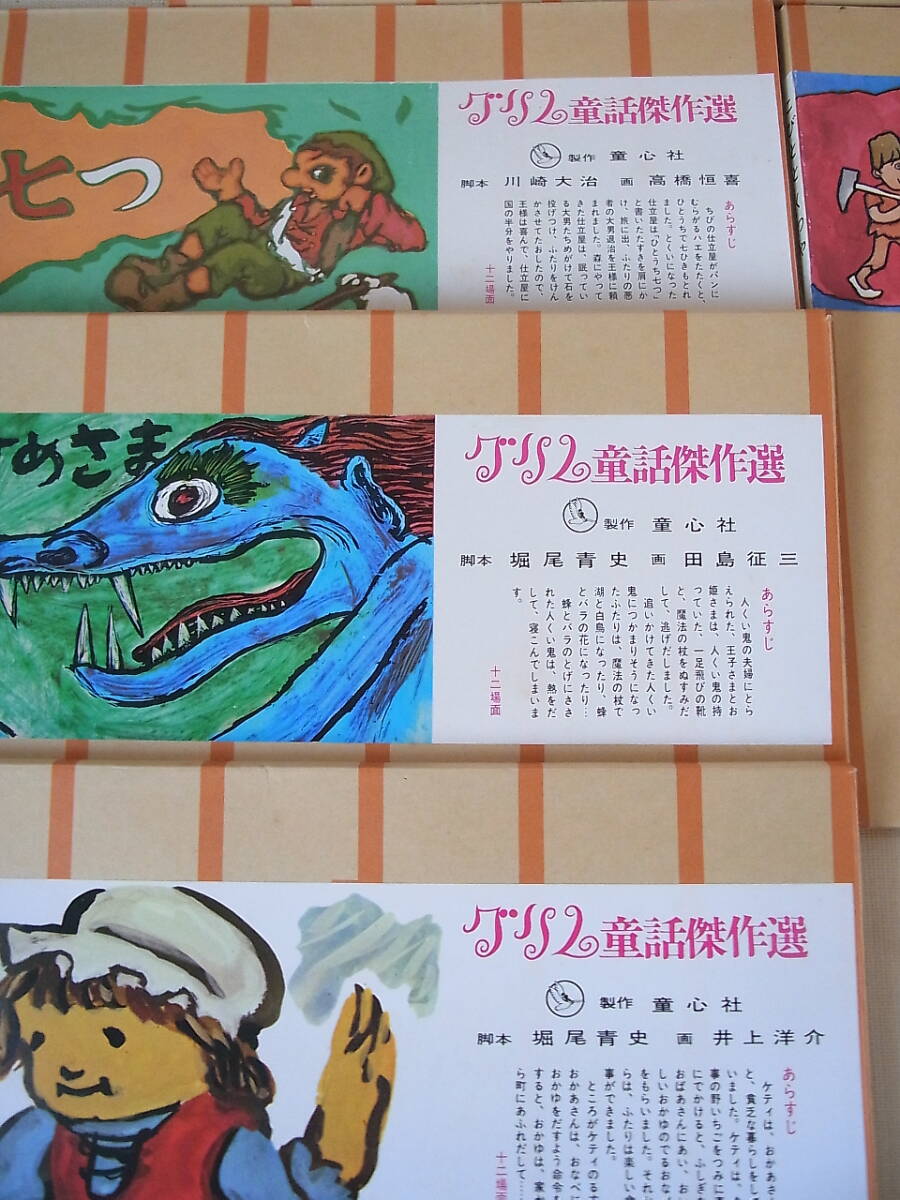 七つ
グリム童話傑作選
製作 童心社
脚本 川崎大治 画 高橋恒喜
あらすじ
ちびの仕立屋がパンに
むらがるハエをたたくと、
ひとうちで七ひきもとれ
ました。とくいになった
仕立屋は〝ひとうち七つ〟
と書いたたすきを肩にか
け、旅に出、ふたりの悪
者の大男退治を王様に頼
まれました。森にやって
きた仕立屋は、眠ってい
る大男たちめがけて石を
投げつけ、ふたりをけん
かさせてたおしたので、
王様は喜んで、仕立屋に
国の半分をやりました。
十二場面
めさま
グリム童話傑作選
製作 童心社
脚本 堀尾青史 画 田島征三
あらすじ
人くい鬼の夫婦にとら
えられた、王子さまとお
姫さまは、人くい鬼の持
つていた、一足飛びの靴
と、魔法の杖をぬすみだ
して、逃げだしました。
追いかけてきた人くい
鬼につかまりそうになっ
たふたりは、魔法の杖で
湖と白鳥になったり、蜂
とバラの花になったり…
蜂とバラのとげにささ
れた人くい鬼は、熱をだ
して、寝こんでしまいま
す。
十二場面
グリム童話傑作選
製作 童心社
脚本 堀尾青史 画 井上洋介
あらすじ
ケティは、おかあさ
と、貧乏な暮らしをし
いました。ケティは、
事の野いちごをつみに
にでかけると、ふしぎ
おばあさんにあい、お
しいおかゆのでるおな
をもらいました。それ
らは、ふたりは楽しい
事ができました。
ところがケティのる
おかあさんは、おなべに
おかゆをだすよう命令
すると、おかゆは、家
ら町にあふれだして……
十二